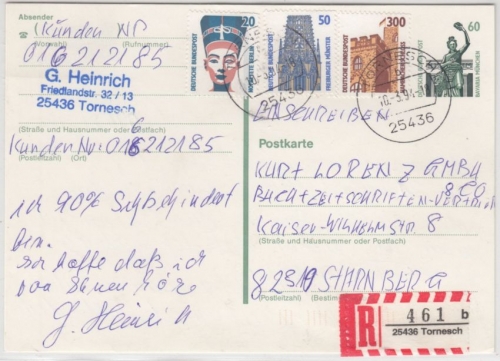 Absender
Kunden NR
(Vorwahl) (Rufnummer)
016212185
G. Heinrich
Friedlandstr. 32/13
25436 Tornesch
(Straße und Hausnummer oder Postfach)
Kunden Nr: 016212185
(Postleitzahl) (Ort)
ich 90%
bin.
hoffe daß ich
von Ihnen höre
G. Heinrich
20
DEUTSCHE BUNDESPOST
50
DEUTSCHE BUNDESPOST
FREIBURGER MÜNSTER
300
DEUTSCHE BUNDESPOST
60
DEUTSCHE BUNDESPOST
BAVARIA MÜNCHEN
25436
25436
EINSCHREIBEN
Postkarte
KURT LORENZ GMBH
& CO
BUCH + ZEITSCHRIFTEN-VERTRIEB
Kaiser-WILHELM STR. 8
(Straße und Hausnummer oder Postfach)
82319 STARNBERG
(Postleitzahl)
R 461 b
25436 Tornesch